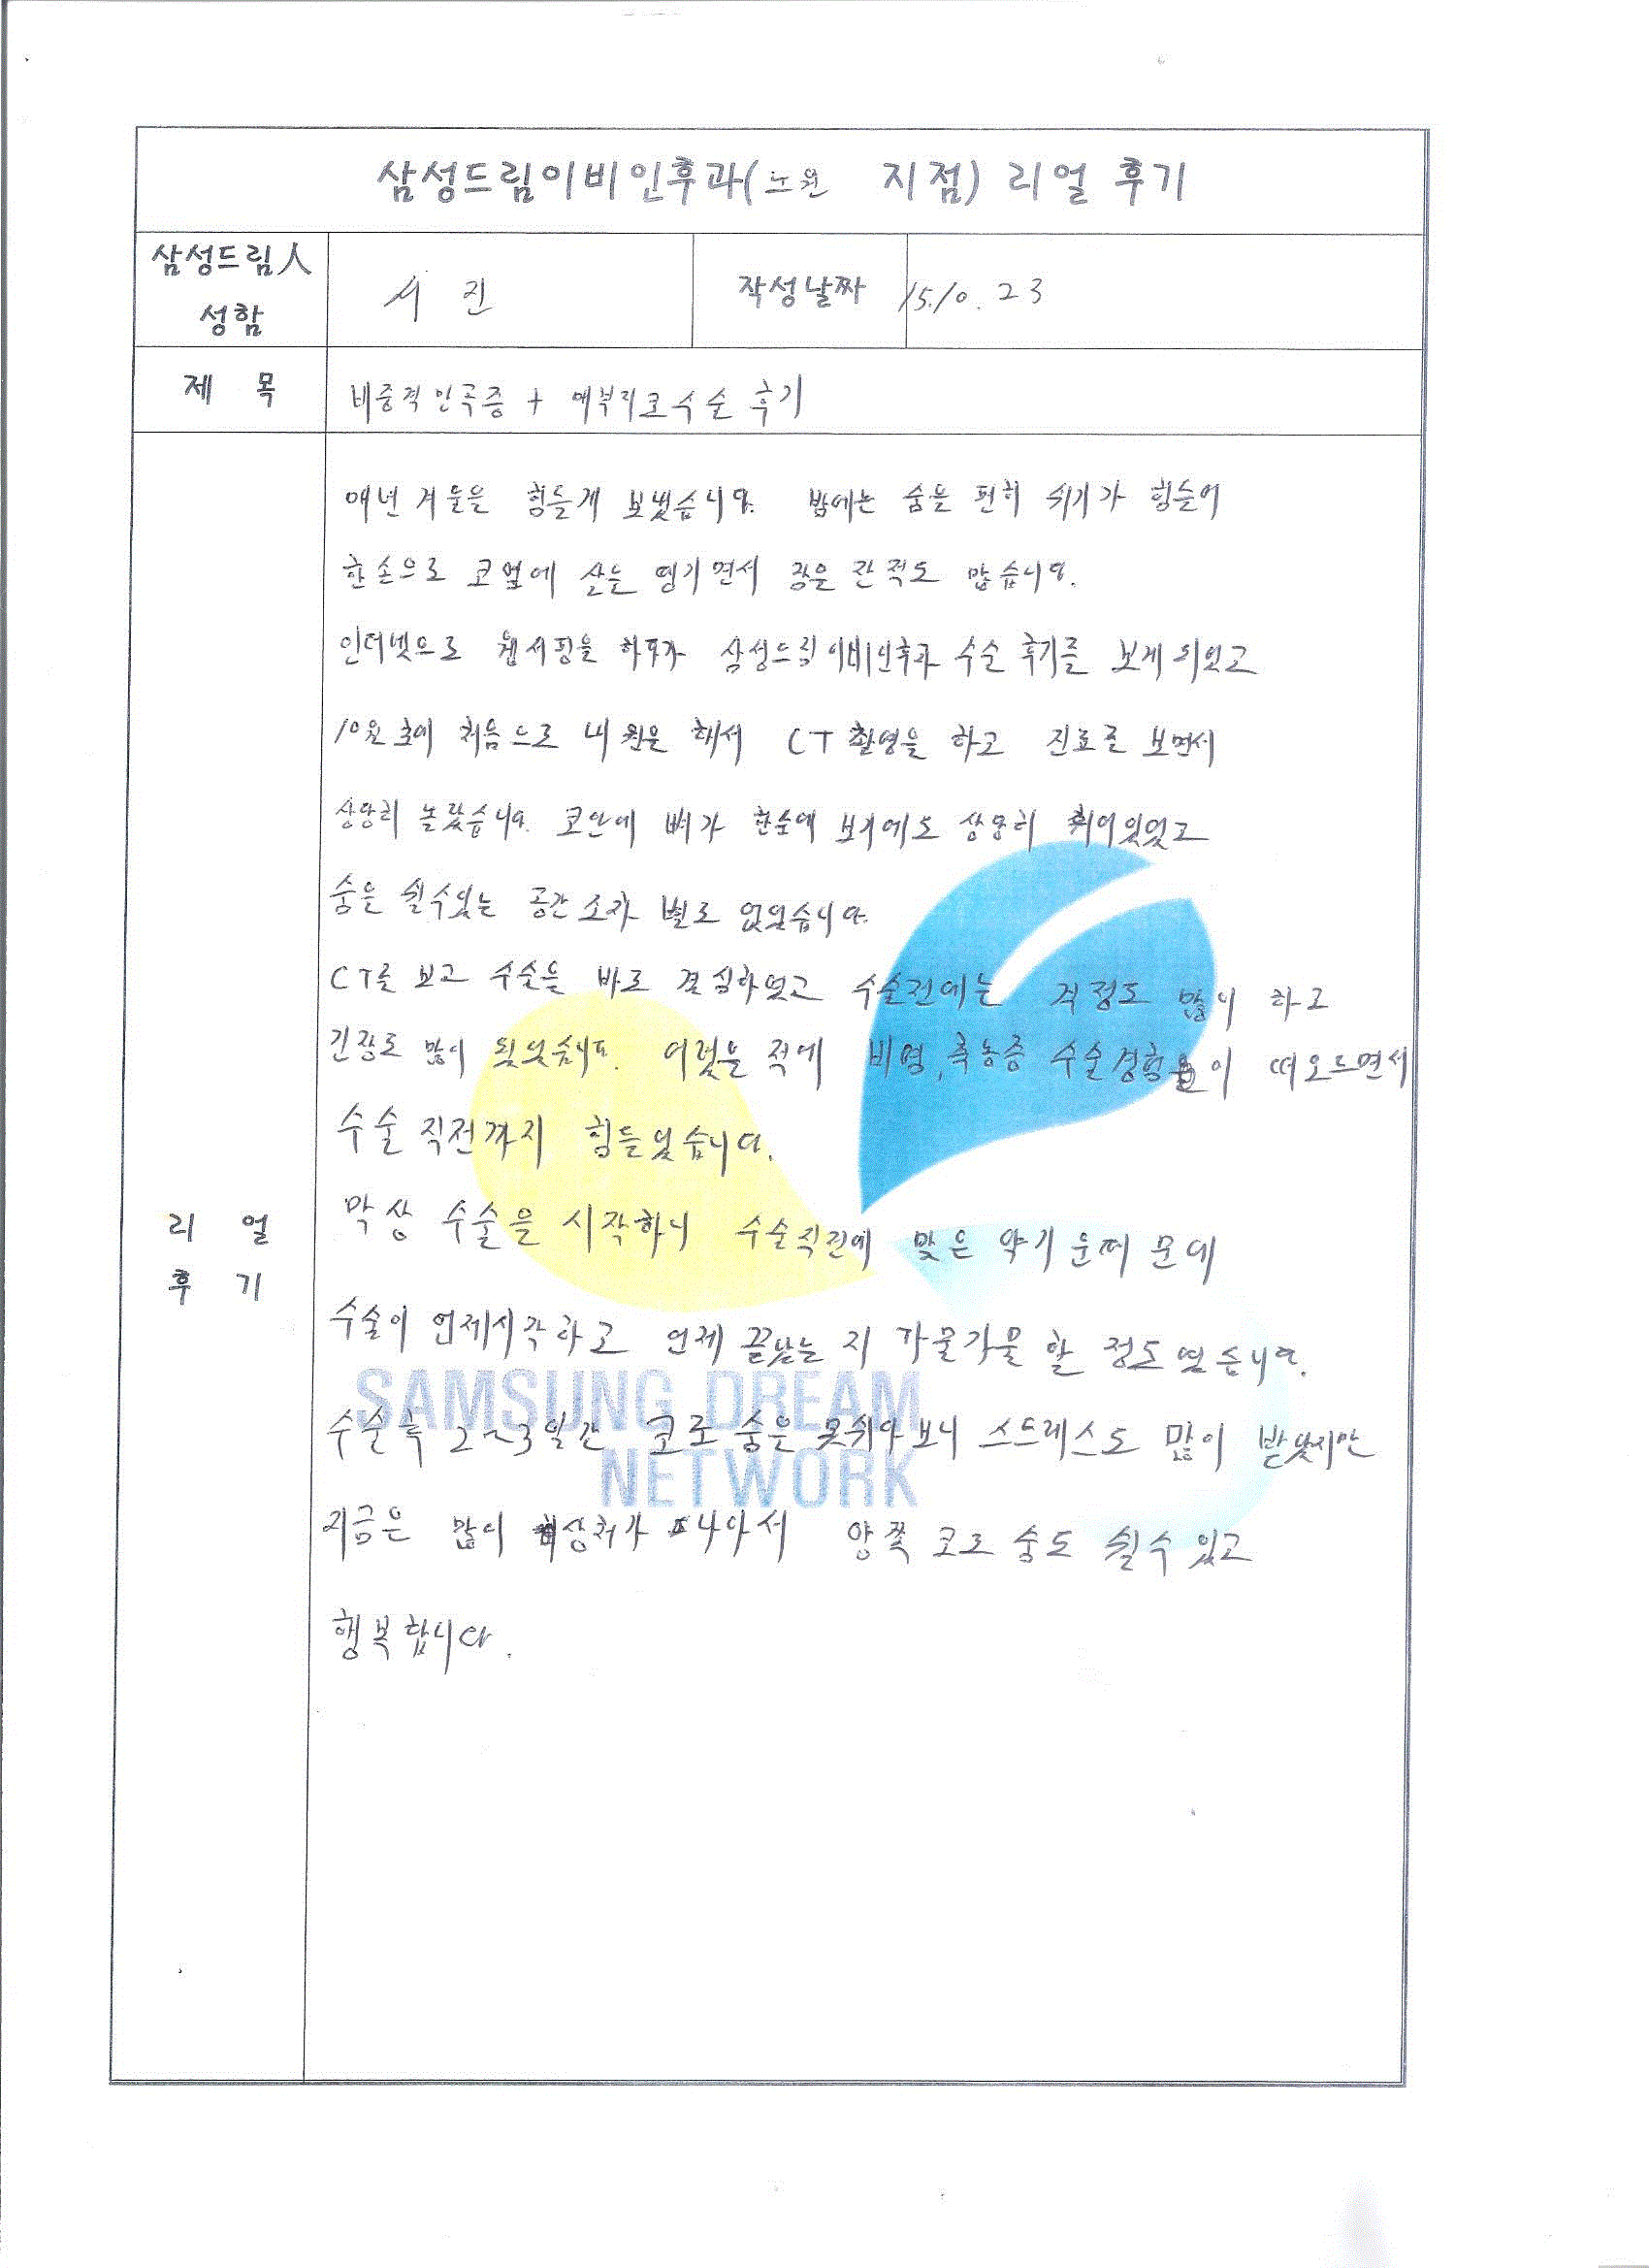 삼성드림이비인후과(노원 지점) 리얼 후기
삼성드림人 성함
서 진
작성날짜
15.10.23
제 목
비중격만곡증 + 매부리코수술 후기
리 얼 후 기
매년 겨울은 힘들게 보냈습니다. 밤에는 숨을 편히 쉬기가 힘들어
한손으로 코옆에 살을 땡기면서 잠을 잔적도 많습니다.
인터넷으로 웹서핑을 하다가 삼성드림이비인후과 수술 후기를 보게되었고
10월초에 처음으로 내원을 해서 CT 촬영을 하고 진료를 보면서
상당히 놀랐습니다. 코안에 뼈가 한눈에 보기에도 상당히 휘어있었고
숨을 쉴수있는 공간조차 별로 없었습니다.
CT를 보고 수술을 바로 결심하였고 수술전에는 걱정도 많이 하고
긴장도 많이 되었습니다. 어렸을 적에 비염,축농증 수술경험들이 떠오르면서
수술 직전까지 힘들었습니다.
막상 수술을 시작하니 수술직전에 맞은 약기운때문에
수술이 언제시작하고 언제 끝났는 지 가물가물 할 정도였습니다.
수술후 2~3일간 코로 숨을 못쉬다보니 스트레스도 많이 받았지만
지금은 많이 상처가 나아서 양쪽 코로 숨도 쉴수 있고
행복합니다.
SAMSUNG DREAM
NETWORK